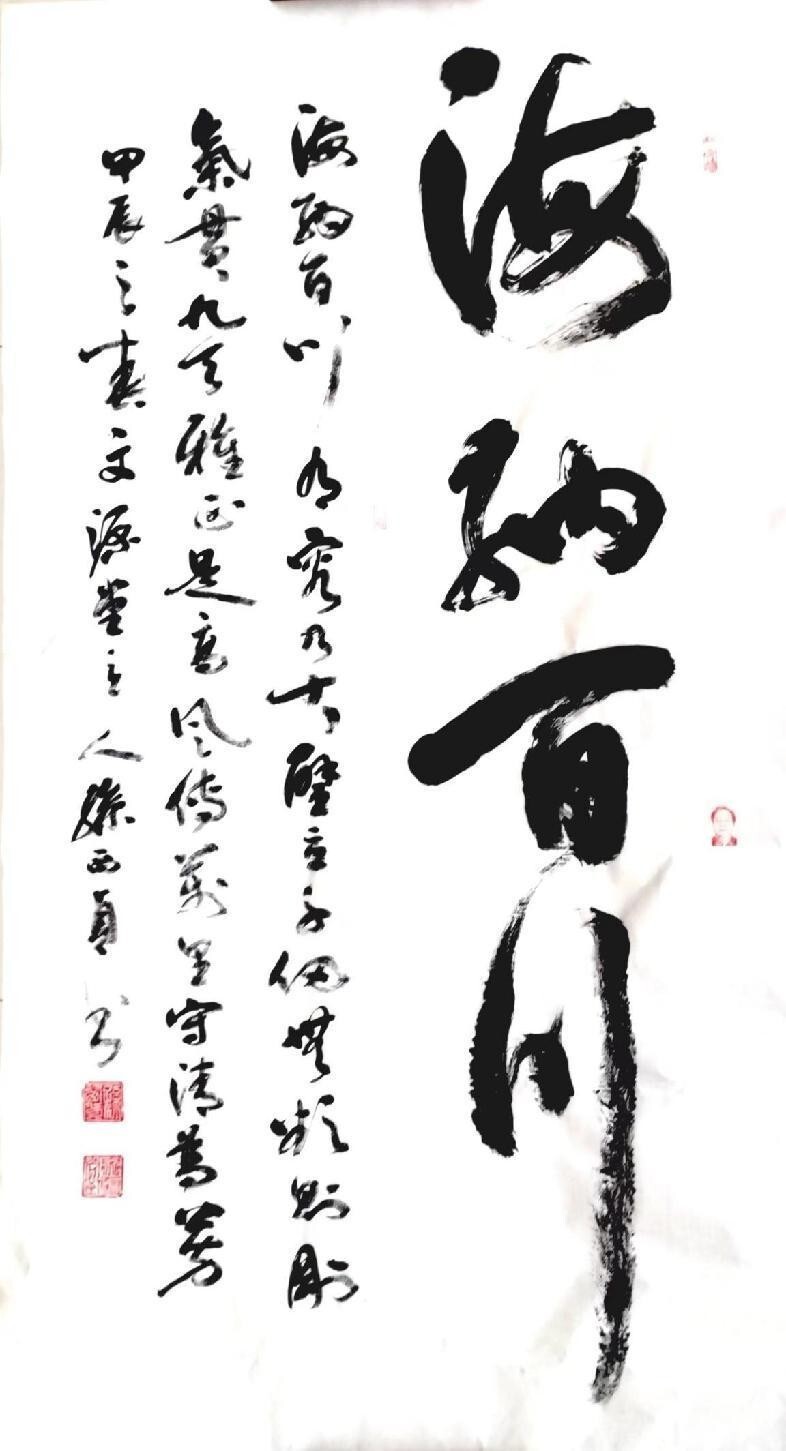 海納百川
海納百川有容乃大壁立千仞無欲則剛
氣貫九天雅正是高風傳萬里守清芳
甲辰之春文源堂主人孫西貞书